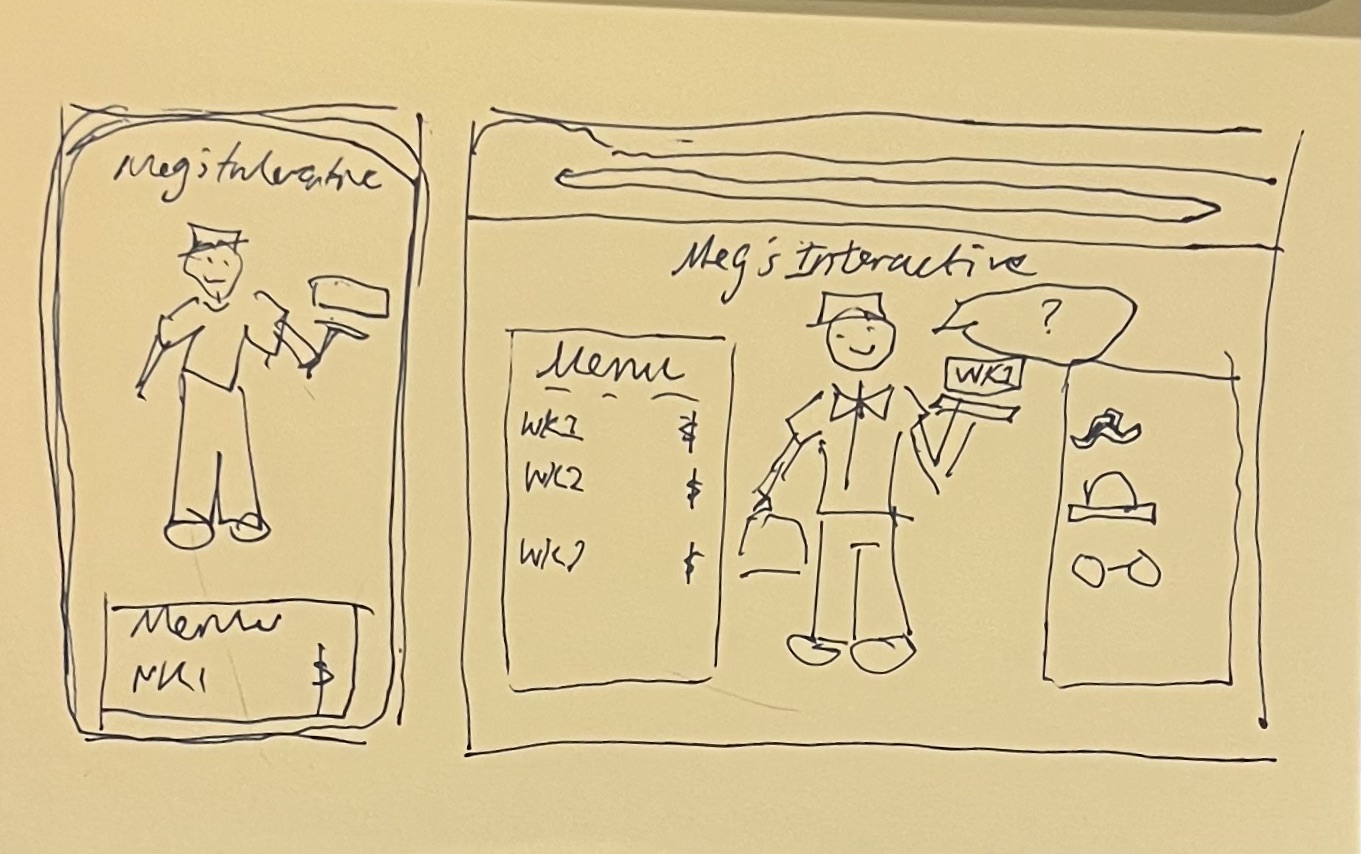 Meg's Interactive
Menu
WK1 $
Meg's Interactive
?
WK1
Menu
WK1 $
WK2 $
WK3 $